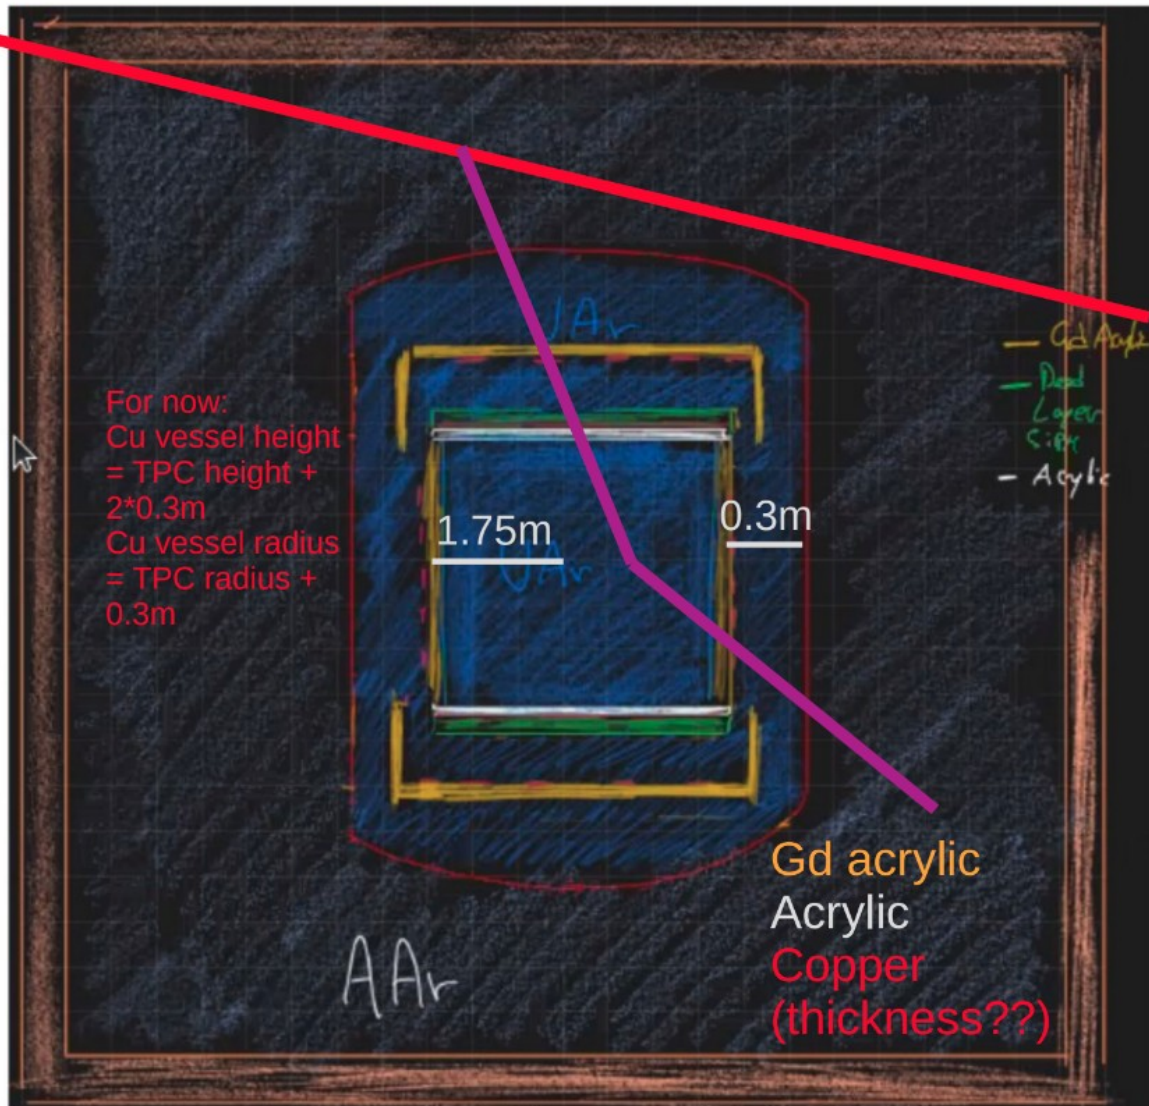 UAr
Gd Acrylic
Dead
Layer
SiPM
Acrylic
For now:
Cu vessel height
= TPC height +
2*0.3m
Cu vessel radius
= TPC radius +
0.3m
1.75m
0.3m
UAr
Gd acrylic
Acrylic
Copper
(thickness??)
AAr